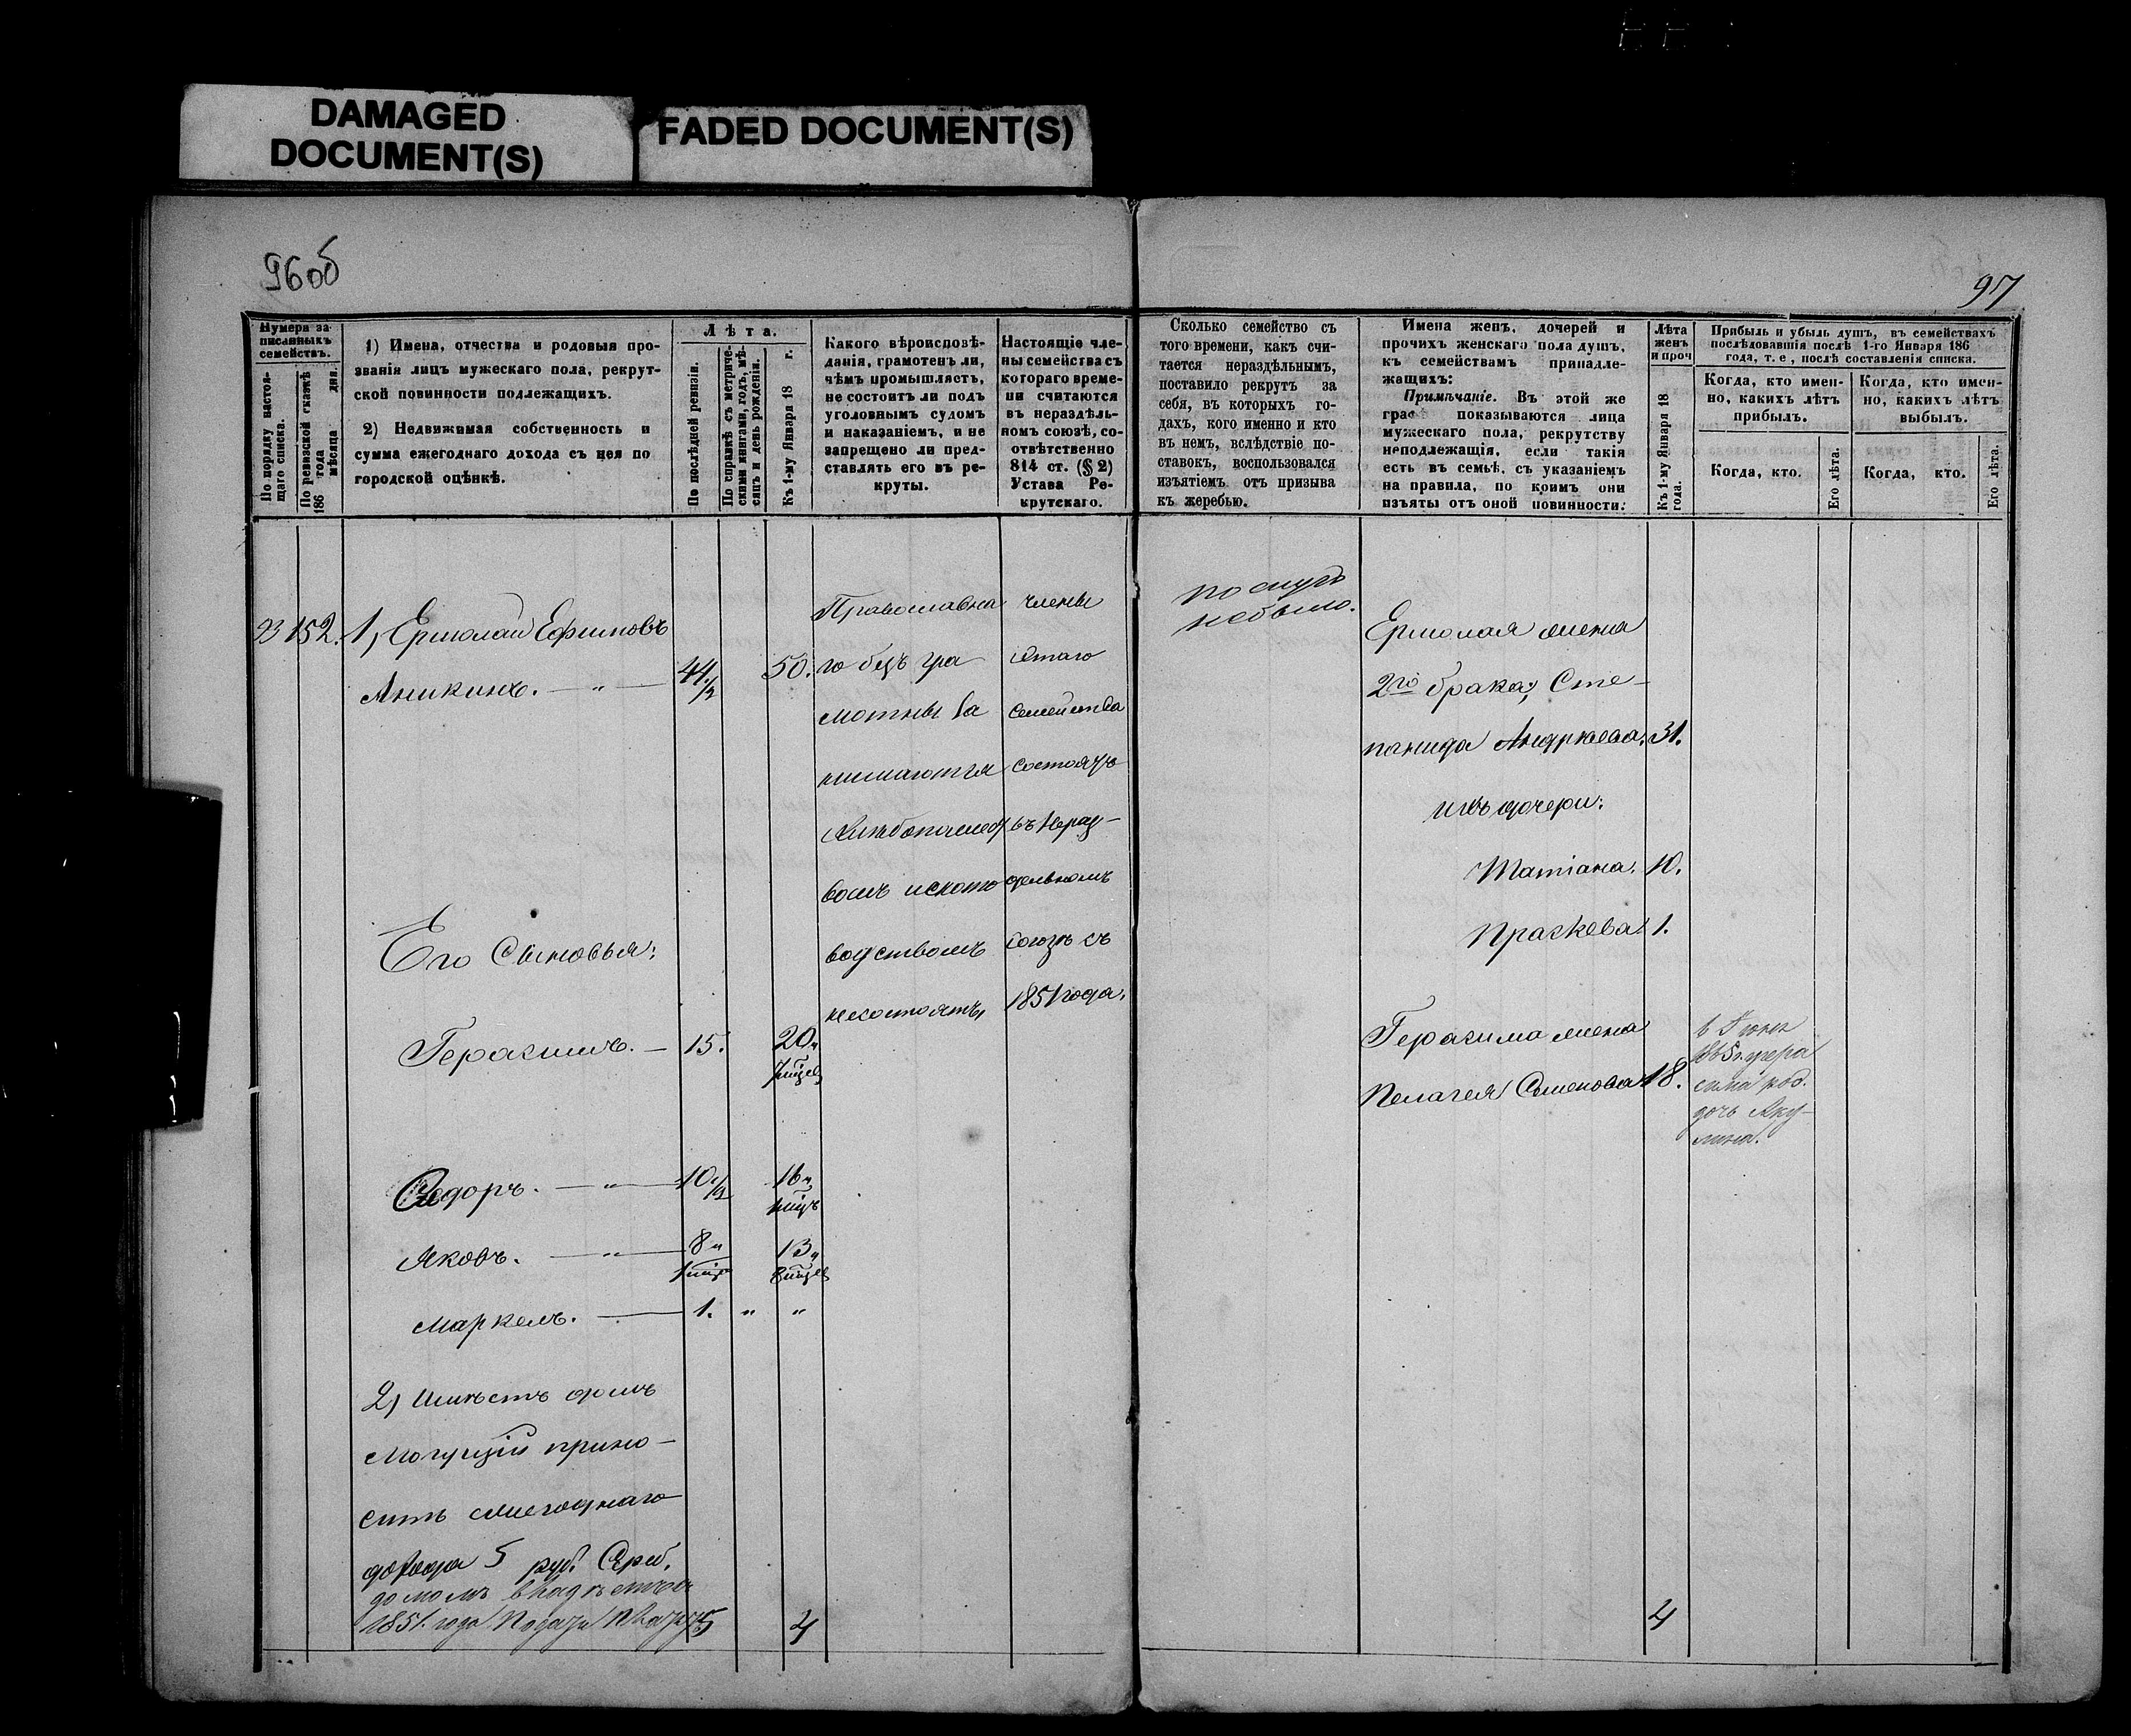 DAMAGED
DOCUMENT(S)
FADED DOCUMENT(S)
96об
97
Нумера за-
писанныхъ
семействъ.
По порядку настоя-
щаго списка.
По ревизской сказкѣ
186 года
мѣсяца дня.
1) Имена, отчества и родовыя про-
званія лицъ мужескаго пола, рекрут-
ской повинности подлежащихъ.
2) Недвижимая собственность и
сумма ежегоднаго дохода съ нея по
городской оцѣнкѣ.
Лѣта.
По послѣдней ревизіи.
По справкѣ съ метриче-
скими книгами, годъ, мѣ-
сяцъ и день рожденія.
Къ 1-му Января 18 г.
Какого вѣроисповѣ-
данія, грамотенъ ли,
чѣмъ промышляетъ,
не состоитъ ли подъ
уголовнымъ судомъ
и наказаніемъ, и не
запрещено ли пред-
ставлять его въ ре-
круты.
Настоящіе чле-
ны семейства съ
котораго време-
ни считаются
въ нераздѣль-
номъ союзѣ, со-
отвѣтственно
814 ст. (§ 2)
Устава Ре-
крутскаго.
Сколько семейство съ
того времени, какъ счи-
тается нераздѣльнымъ,
поставило рекрутъ за
себя, въ которыхъ го-
дахъ, кого именно и кто
въ немъ, вслѣдствіе по-
ставокъ, воспользовался
изъятіемъ отъ призыва
къ жеребью.
Имена женъ, дочерей и
прочихъ женскаго пола душъ,
къ семействамъ принадле-
жащихъ:
Примѣчаніе. Въ этой же
графѣ показываются лица
мужескаго пола, рекрутству
неподлежащія, если такія
есть въ семьѣ, съ указаніемъ
на правила, по коимъ они
изъяты отъ оной повинности.
Лѣта
женъ
и проч
Къ 1-му Января 18
года.
Прибыль и убыль душъ, въ семействахъ
послѣдовавшія послѣ 1-го Января 186
года, т. е, послѣ составленія списка.
Когда, кто имен-
но, какихъ лѣтъ
прибылъ.
Когда, кто имен-
но, какихъ лѣтъ
выбылъ.
Когда, кто.
Его лѣта.
Когда, кто.
Его лѣта.
93 152. 1, Ермолай Ефимовъ
Аникинъ. — " — 44.½ 50.
Его Сыновья:
Герасимъ. — 15. 20 "
Ѳедоръ. — " — 10.½ 16 "
Яковъ. — " — 8 " 13 "
Маркелъ. — 1. " "
2) Имѣетъ домъ
могущій прино-
сить ежегоднаго
дохода 5 руб. Сереб.
домомъ владѣетъ съ
1851. года
5 4
Православна
го безъ гра
мотны за
нимаются
хлѣбопашест
вомъ иското
водствомъ
несостоятъ
члены
этаго
семейства
состоятъ
въ нераз-
дельномъ
союзѣ съ
1851 года.
небыло.
Ермолая жена
2го брака, Сте-
панида Андрѣева. 31.
ихъ дочери:
Татіана. 10.
Прасковья 1.
Герасима жена
Пелагея Семенова 18.
в Іюнѣ
1865 г. угера
сима род.
дочь Аку-
лина.
4